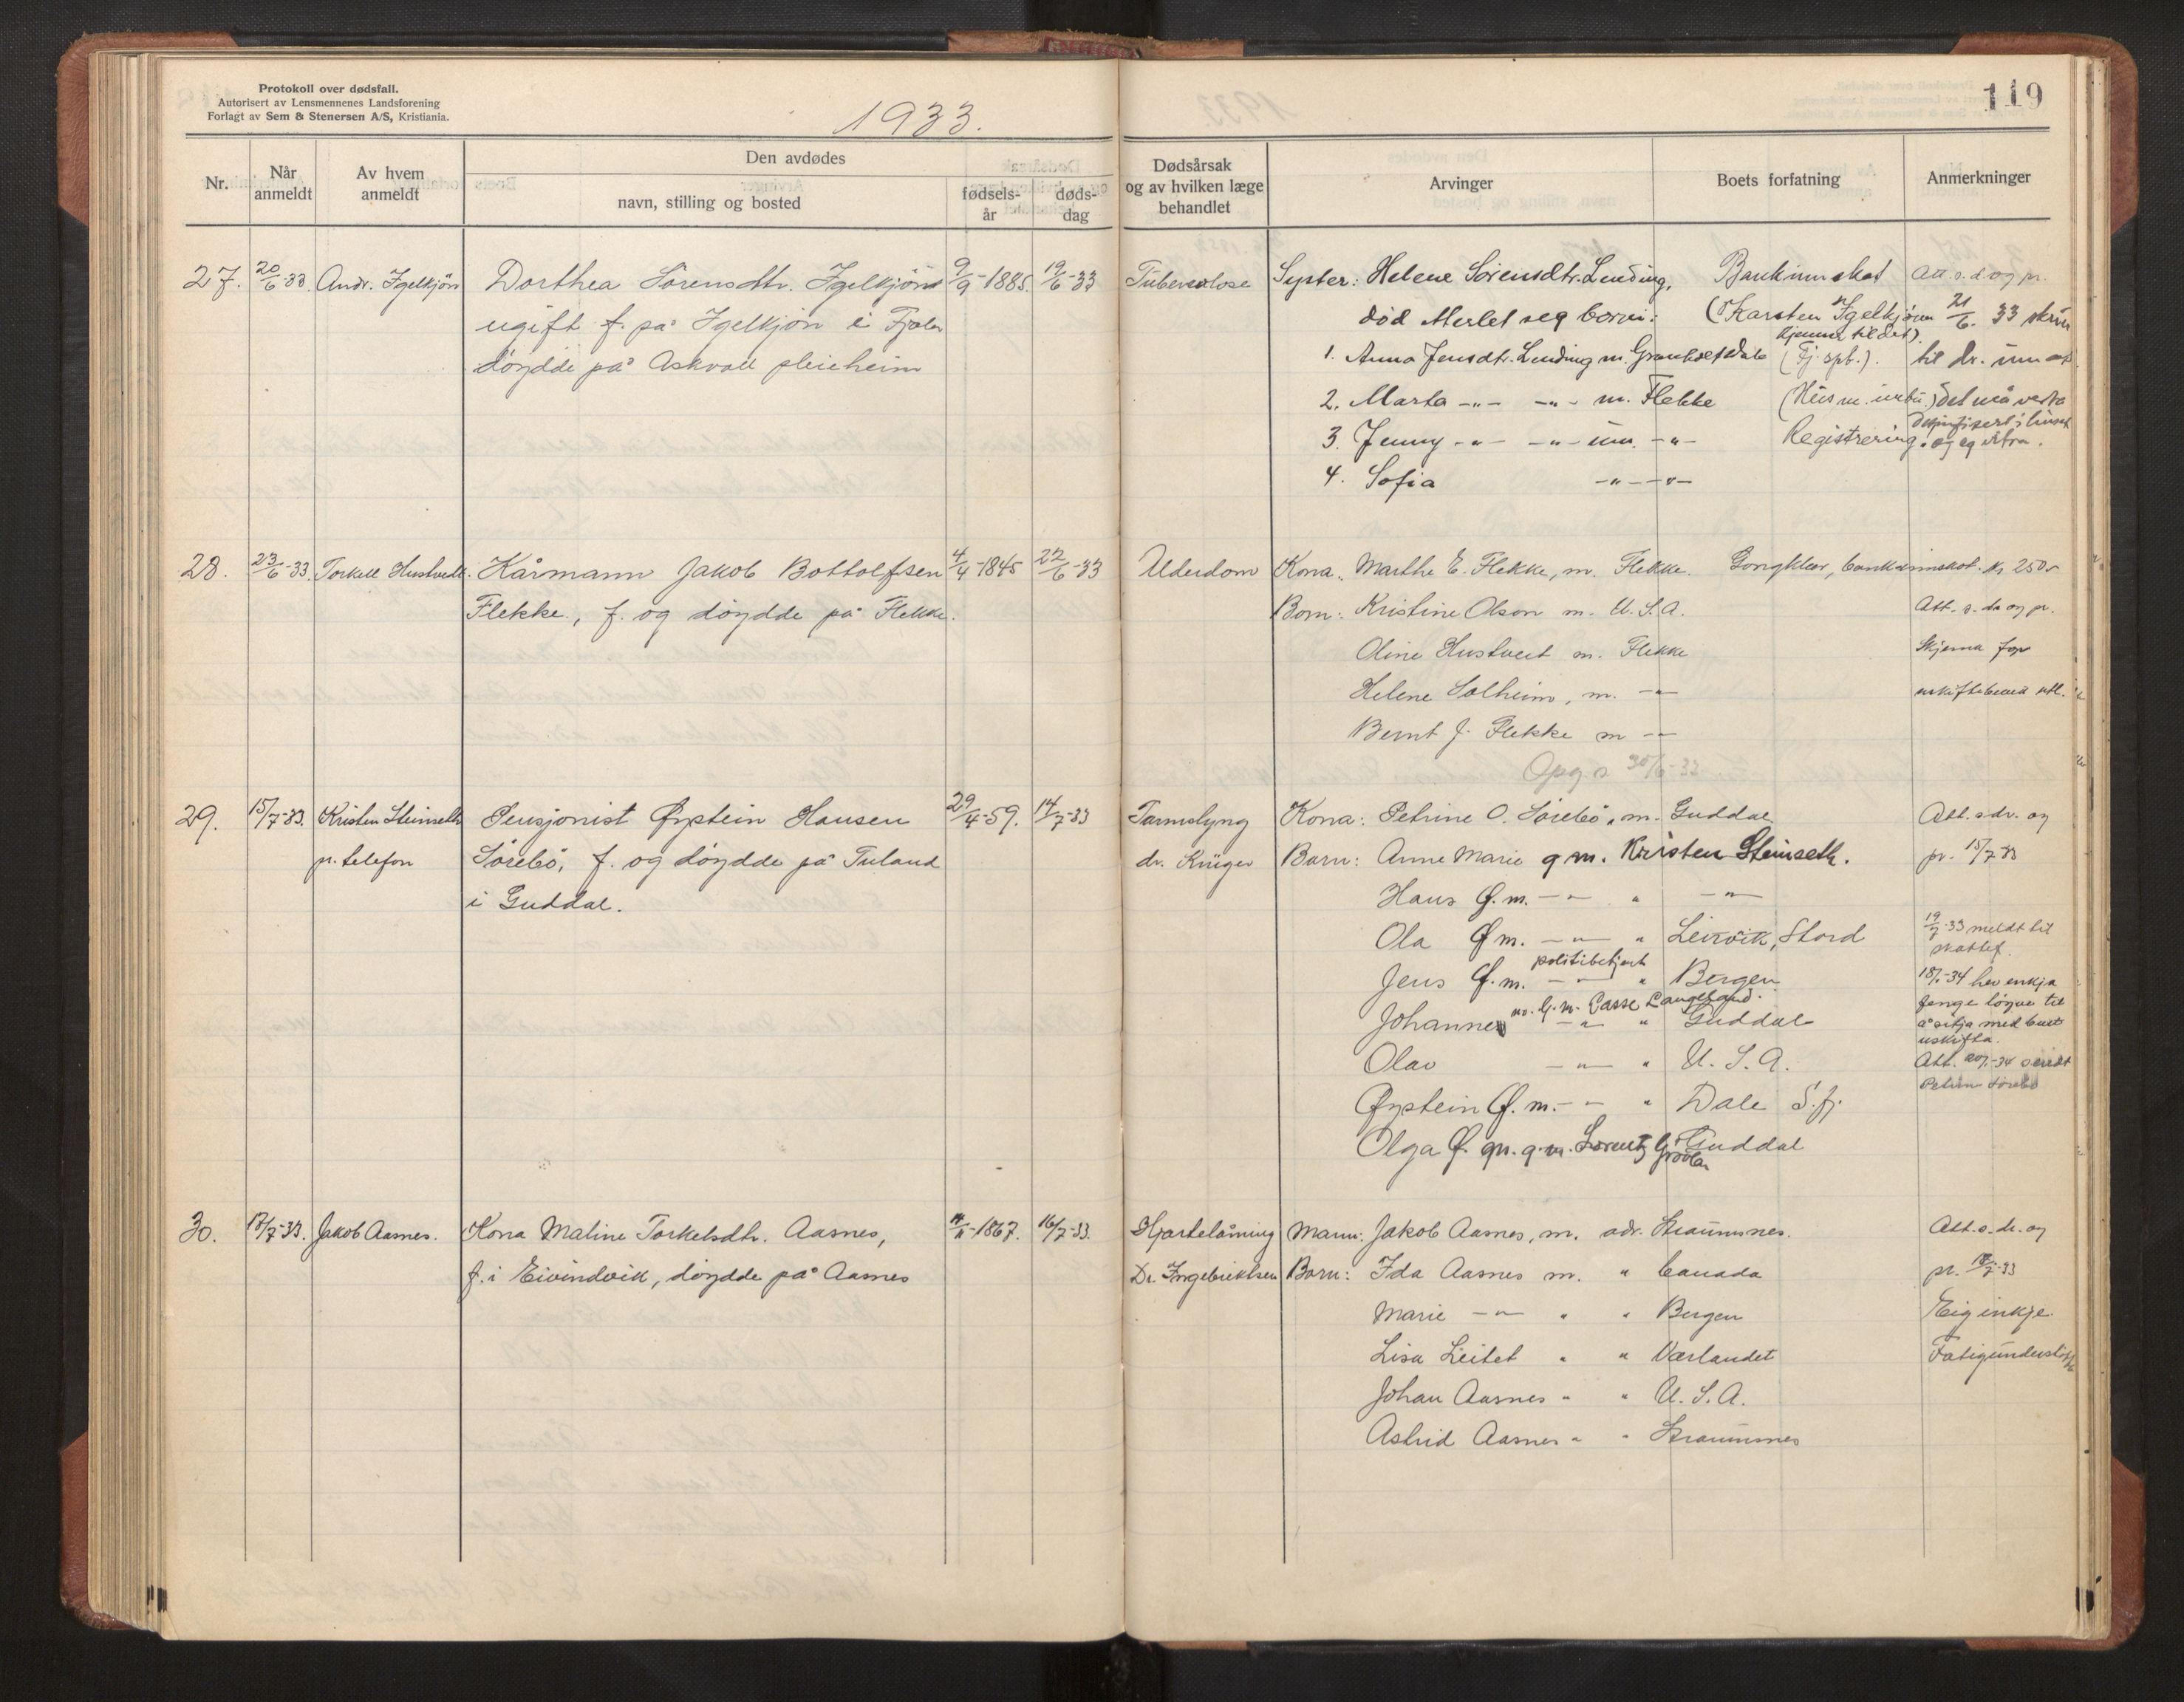 Protokoll over dødsfall.
Autorisert av Lensmennenes Landsforening
Forlagt av Sem & Stenersen A/S, Kristiania.
1933.
119
Nr.
Når anmeldt
Av hvem anmeldt
Den avdødes
navn, stilling og bosted
fødsels-år
døds-dag
Dødsårsak og av hvilken læge behandlet
Arvinger
Boets forfatning
Anmerkninger
27. 20/6-33. Andr. Igelkjøn Dorthea Sørensdtr. Igelkjøn 9/9-1885. 19/6-33 Tuberculose Syster: Helene Sørensdtr. Lending, Bankinnskot Att. s. dr og pr.
ugift f. på Igelkjøn i Fjaler død Merlet seg born: (Karsten Igelkjøn 21/6. 33 skriv
kjenner til det).
døydde på Askvoll pleieheim 1. Anna Jensdtr. Lending m. Dale (Fj. spb.). til dr. um at
2. Marta -"- -"- m. Flekke det må verta
3. Jenny -"- -"- um. -"- Registrering. og eg
desinfisert i huset
4. Sofia -"- -"-
28. 23/6-33 Torkell Hustvedt. Kårmann Jakob Bottolfsen 4/4-1845 22/6-33 Alderdom Kona: Marthe E. Flekke, m. Flekke. bankinnskot. kr 250
Flekke, f. og døydde på Flekke. Born: Kristine Olson m. U.S.A. Att. s. dr og pr.
Oline Hustveit m. Flekke Skjema for
Helene Solheim, m. -"- uskiftebevi utl.
Bernt J. Flekke m -"-
Opg. s 30/6-33
29. 15/7-33. Kristen Steinseth Pensjonist Øystein Hansen 29/4-59. 14/7-33 Tarmslyng Kona: Petrine O. Sørebö, m. Guddal Att. s. dr. og
pr. telefon Sørebö, f. og døydde på Tuland dr. Krüger Barn: Anne Marie g m. Kristen Steinseth. pr. 15/7 33
i Guddal. Hans Ø. m. -"- " -"-
Ola Ø m. -"- " Leirvik, Stord 19/7-33 meldt til skattef.
politibetjent
Jens Ø. m. -"- " Bergen 18/1-34 hev enkja
no. G. m. Lasse Langeland.
Johanne -"- " Guddal fenge løyve til
å sitja med buet uskifta.
Olav -"- " U.S.A. Att. 20/1-34 sendt
Petrine Sørebö
Øystein Ø. m. -"- " Dale S.fj.
Olga Ø. gm. g. m. Lorentz Guddal
30. 18/7-33. Jakob Aasnes. Kona Maline Torkelsdtr. Aasnes, 11/11-1867. 16/7-33. Hjartelåming Mann: Jakob Aasnes, m. adr. Straumsnes. Att. s. dr. og
f. i Eivindvik, døydde på Aasnes Dr. Ingebriktsen Barn: Ida Aasnes m. " Canada pr. 18/7-33
Marie -"- " " Bergen Eig inkje.
Lisa Leitet " " Værlandet Fatigunderstöt
Johan Aasnes " " U.S.A.
Astrid Aasnes " " Straumsnes